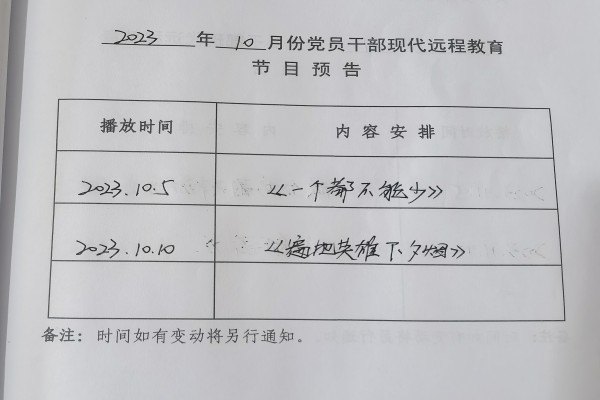 2023 年 10 月份党员干部现代远程教育
节目预告
播放时间 内容安排
2023.10.5 《一个都不能少》
2023.10.10 《遍地英雄下夕烟》
备注：时间如有变动将另行通知。